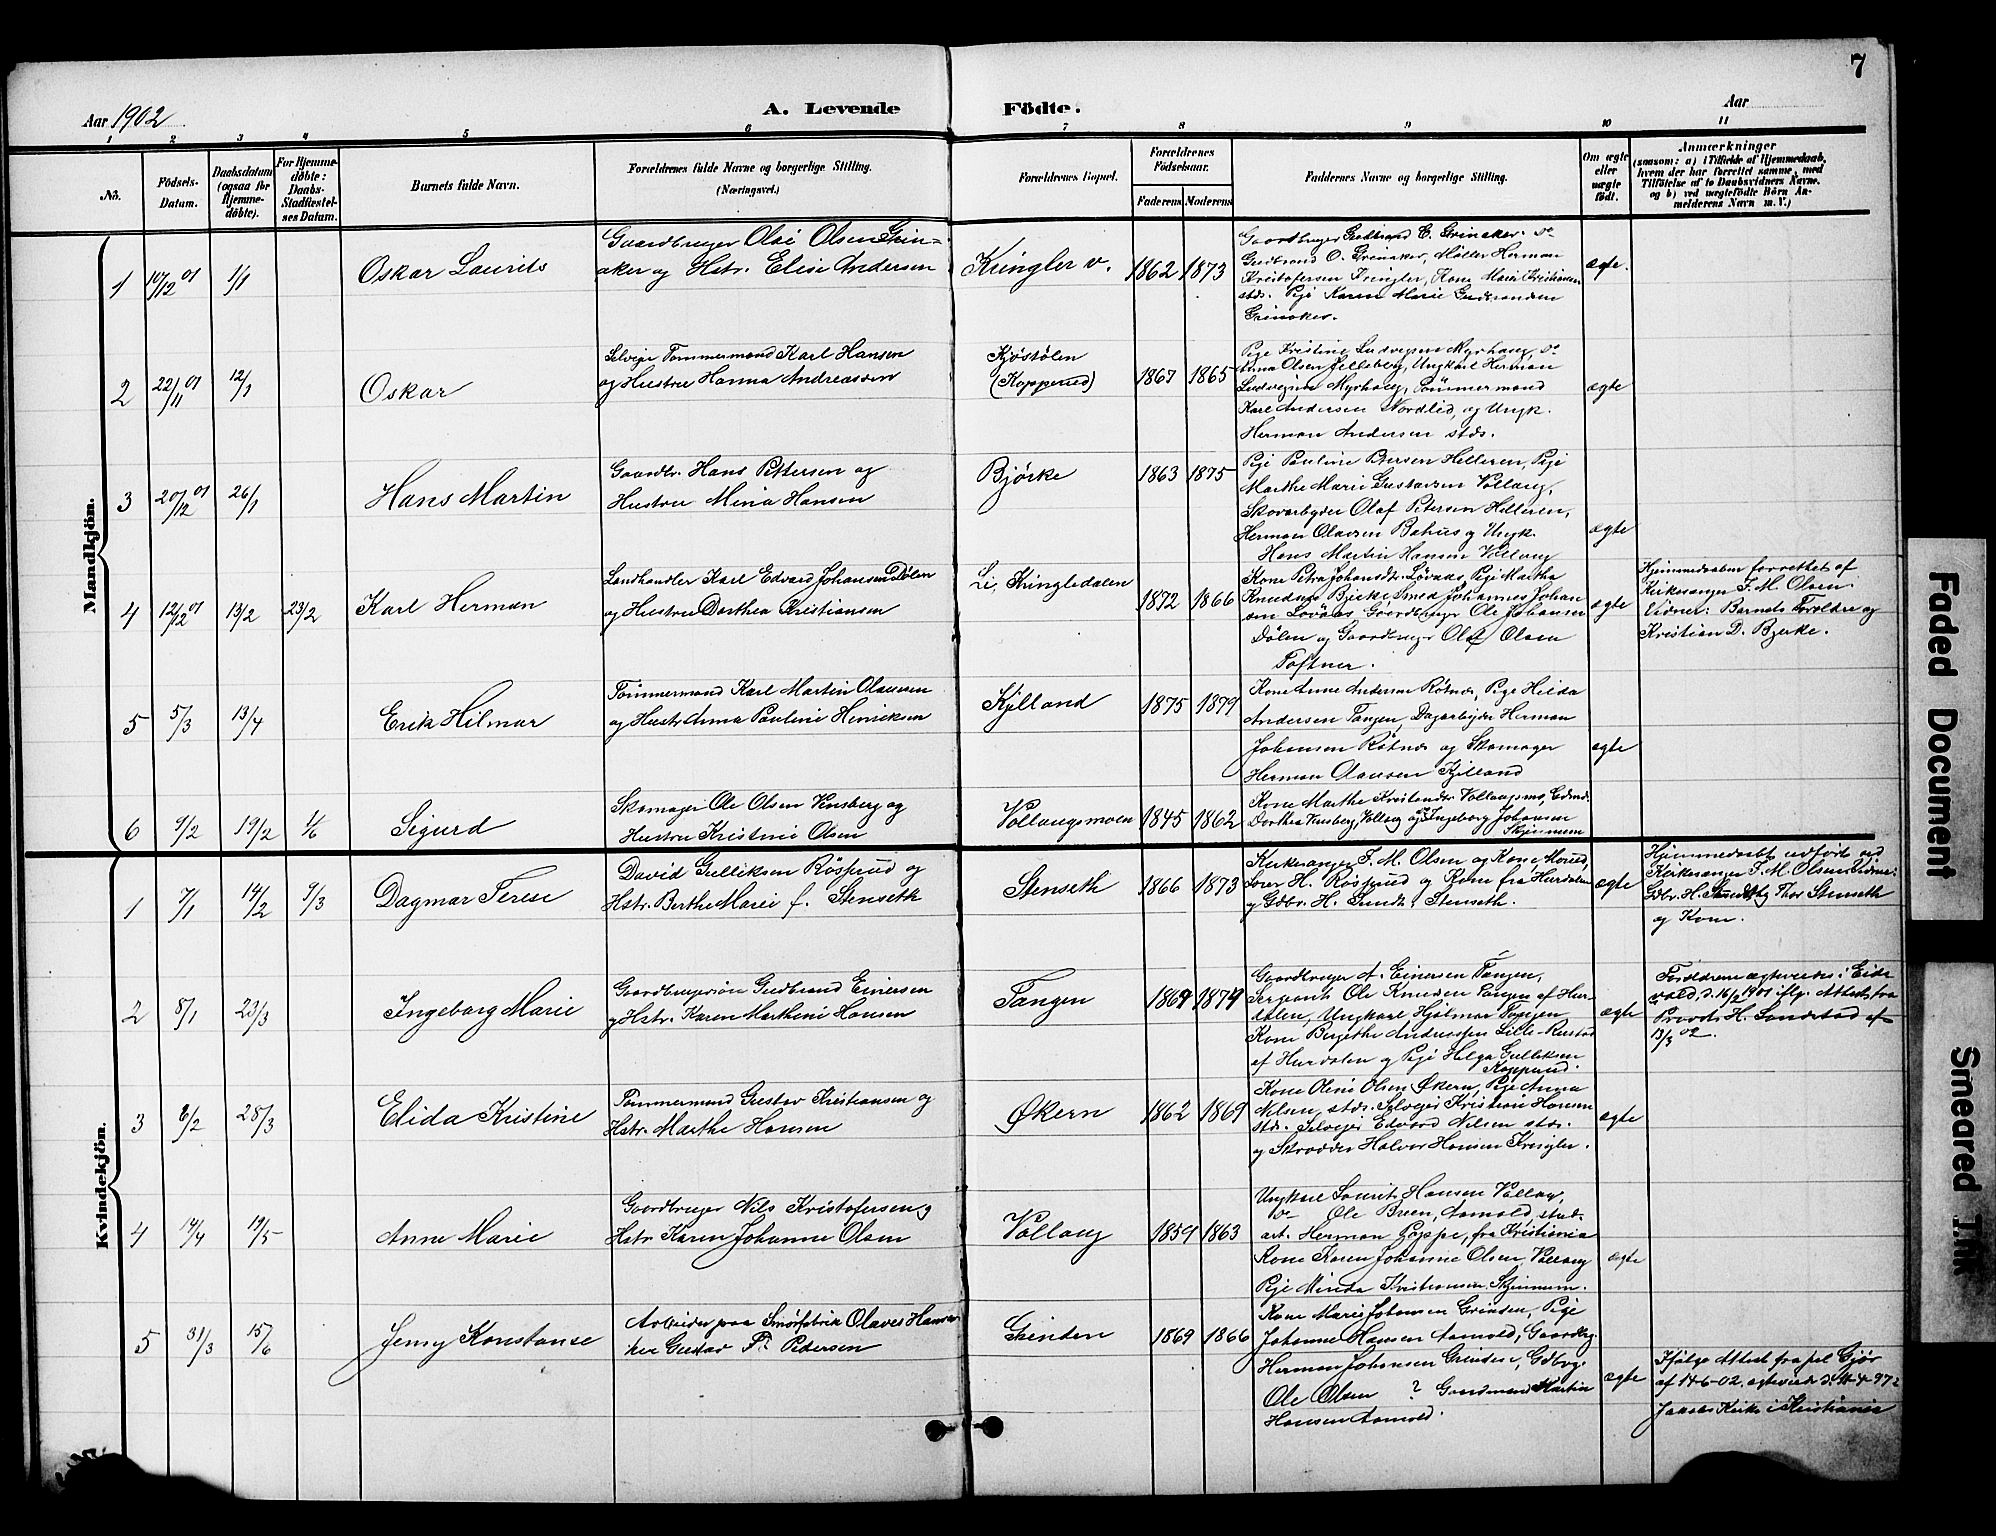 7
Aar 1902
A. Levende Födte.
Aar
1 2 3 4 5 6 7 8 9 10 11
No.
Födsels-Datum.
Daabsdatum (ogsaa for Hjemme-döbte).
For Hjemme-döbte: Daabs-Stadfæstel-ses Datum.
Barnets fulde Navn.
Forældrenes fulde Navne og borgerlige Stilling.
(Næringsvei.)
Forældrenes Bopæl.
Forældrenes Födselsaar.
Faderens Moderens
Faddernes Navne og borgerlige Stilling.
Om ægte eller uægte födt.
Anmærkninger
(saasom: a) i Tilfælde af Hjemmedaab,
hvem der har forrettet samme, med
Tilföielse af to Daabsvidners Navne,
og b) ved uægtefödte Börn An-
melderens Navn m. V.)
Mandkjön.
1 10/12 01 1/1 Oskar Laurits
Gaardbruger Olai Olsen Grin-
aker og Hstr. Elise Andersen
Kringler v. 1862 1873
Gaardbruger Gudbrand E. Grinaker. do
Gudbrand O. Grinaker, Møller Herman
Kristofersen Kringler, Kone Marie Kristiansen
stds. Pige Karen Marie Gudbrandsen
Grinaker.
ægte.
2 22/11 01 12/1 Oskar
Selveier Tømmermand Karl Hansen
og Hustru Hanna Andreassen
Kjøstølen
(Kopperud)
1867 1865
Pige Kristine Ludvigsen Myrhaug, do
Anna Olsen Jellsberg, Ungkarl Herman
Ludvigsen Myrhaug, Tømmermand
Karl Andersen Nordlid, og Ungk.
Herman Andersen stds.
ægte
3 20/12 01 26/1 Hans Martin
Gaardbr. Hans Pettersen og
Hustru Mina Hansen
Bjørke 1863 1875
Pige Pauline Petersen Helleren, Pige
Marthe Marie Gustavsen Vollaug,
Skovarbeider Olaf Petersen Helleren,
Herman Olavsen Bahus og Ungk.
Hans Martin Hansen Vollaug
ægte
4 12/12 01 13/2 23/2 Karl Herman
Landhandler Karl Edvard Johansen Dølen
og Hustru Dorthea Kristiansen
Li, Kringledalen
1872 1866
Kone Petra Johansdtr. Løvaas, Pige Martha
Knudsen Bjerke Smed Johannes Johan
sen Løvaas, Gaardbruger Ole Johansen
Dølen og Gaardbruger Olaf Olsen
Toftner.
ægte
Hjemmedaaben forrettet af
Kirkesanger J. M. Olsen.
Vidner: Barnets Forældre og
Kristian D. Bjerke.
5 5/3 13/4 Erik Hilmar
Tømmermand Karl Martin Olausen
og Hustr. Anna Pauline Henriksen
Kjelland 1875 1879
Kone Anne Andersen Røtnes, Pige Hilda
Andersen Tangen, Dagarbeider Herman
Johansen Røtnes og Skomager
Herman Olausen Kjelland
ægte
6 9/2 19/2 1/6 Sigurd
Skomager Ole Olsen Vensberg og
Hustru Kristine Olsen
Vollaugsmoen 1845 1862
Kone Marthe Vollaugsmo,
Dorthea Vensberg, Vollaug og Ingeborg Johansen
Skjennum
Kvindekjön.
1 7/1 14/2 9/3 Dagmar Terese
David Gulliksen Røsprud og
Hstr. Berthe Marie f. Stenseth
Stenseth 1866 1873
Kirkesanger J. M. Olsen og Kone
Lærer H. Røsprud og Kone fra Hurdalen
og Gdbr. H. Sundt, Stenseth.
ægte
Hjemmedøbt udført ved
Kirkesanger J. M. Olsen Vidner:
Gdbr. H. Sundt og Thor Stenseth
og Kone.
2 8/1 23/3 Ingeborg Marie
Gaardbrugersøn Gudbrand Einersen
og Hstr. Karen Marthine Hansen
Tangen 1869 1874
Gaardbruger A. Einersen Tangen,
Sergeant Ole Knudsen Tangen af Hur-
dalen, Ungkarl Hjalmar Tangen
Kone Bergithe Andreassen Lille-Rustad
af Hurdalen og Pige Helga Gulliksen
Kopperud.
ægte
Forældrene ægteviede i Eids
vold, d. 16/2 1901 iflg. Attest fra
Provst H. Sandstad af
13/3 02.
3 6/2 28/3 Elida Kristine
Tømmermand Gustav Kristiansen og
Hstr. Marthe Hansen
Økern 1862 1869
Kone Oline Olsen Økern, Pige Anna
Nilsen, stds. Selveier Kristian Hansen
stds. Selveier Edvard Nilsen stds.
og Skrædder Halvor Hansen Kringler.
ægte
4 14/4 19/5 Anne Marie
Gaardbruger Nils Kristofersen og
Hstr. Karen Johanne Olsen
Vollaug 1859 1863
Ungkarl Laurits Hansen Vollaug,
do Ole Breen, Aamold, stud.
art. Herman Poppe, fra Kristiania
Kone Karen Johanne Olsen, Vollaug
Pige Minda Kristiansen Skjennum.
ægte
5 31/3 15/6 Jenny Konstanse
Arbeider paa Smørfabrik Olaves Hansen
Gustav Pedersen
Grinden 1869 1866
Kone Marie Johansen Grinden, Pige
Johanne Hansen Aamold, Gaardbr.
Herman Johansen Grinden, Gdbrg.
Ole Olsen ? Gaardmand Martin
Hansen Aamold.
ægte
Ifølge Attest fra
af 14-6-02, ægteviet d. 4-97 i
Jakobs Kirke i Kristiania
Faded Document
Smeared Ink